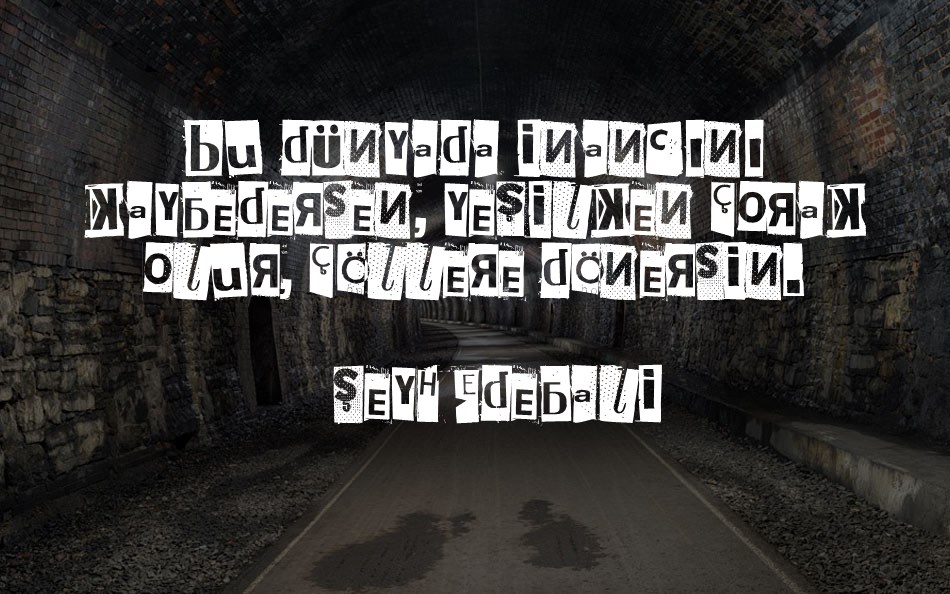 bu dünyada inancını
kaybedersen, yeşilken çorak
olur, çöllere dönersin.
Şeyh Edebali